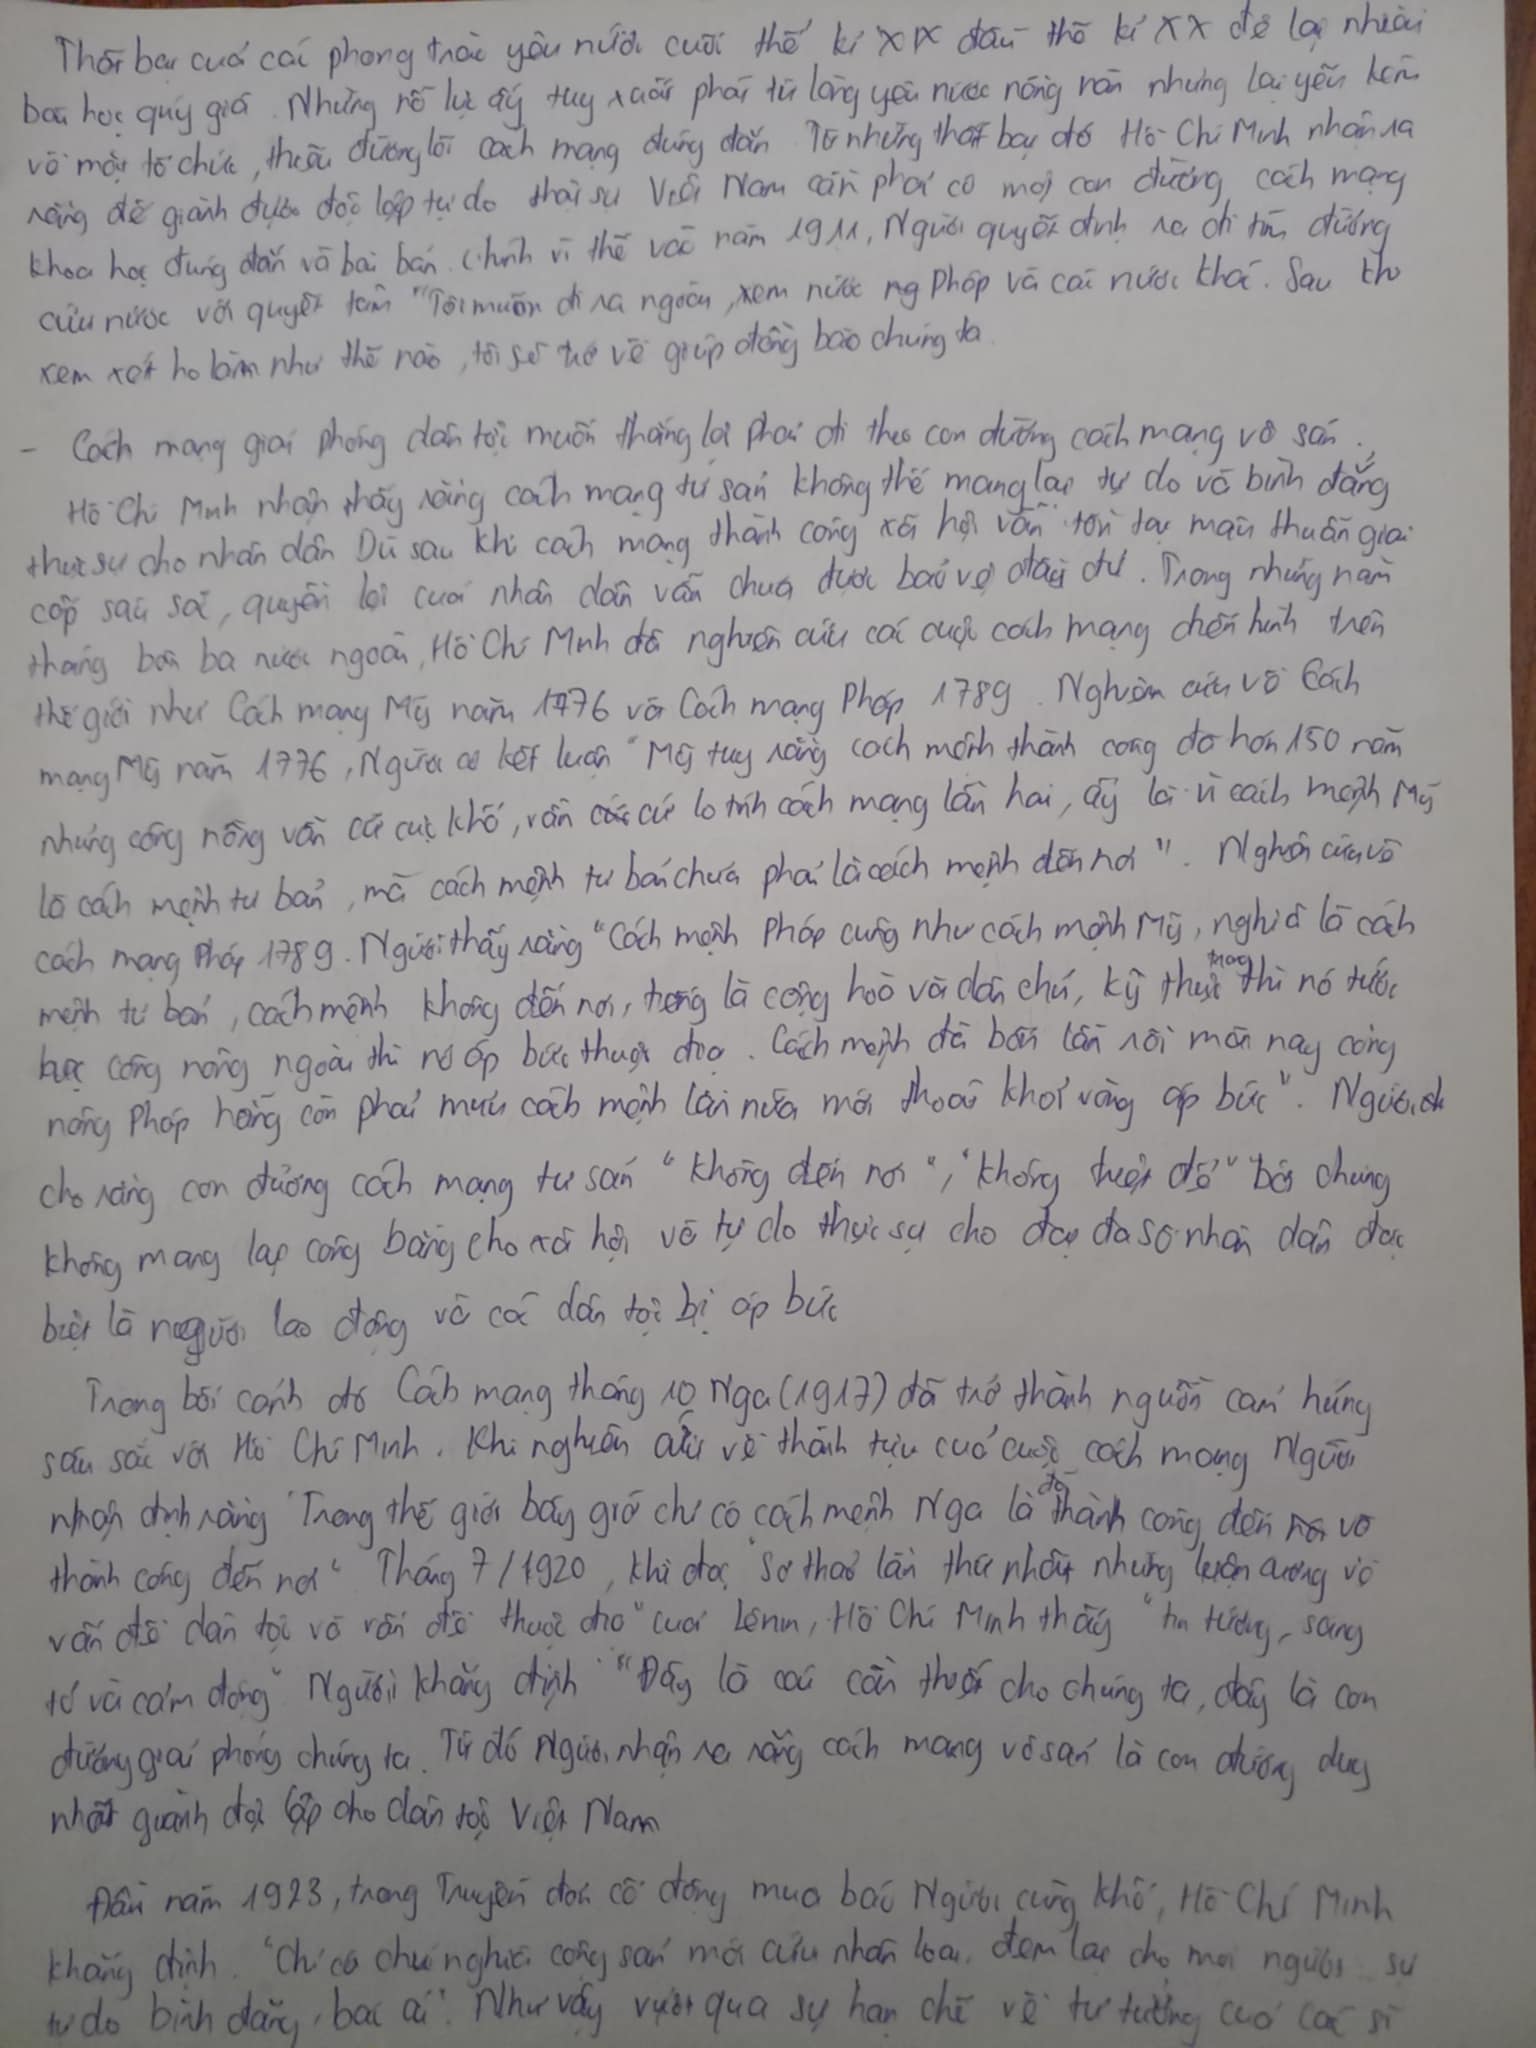 Thất bại của các phong trào yêu nước cuối thế kỉ XIX đầu thế kỉ XX để lại nhiều
bài học quý giá. Những nỗ lực ấy tuy xuất phát từ lòng yêu nước nồng nàn nhưng lại yếu kém
về mặt tổ chức, thiếu đường lối cách mạng đúng đắn. Từ những thất bại đó Hồ Chí Minh nhận ra
rằng để giành được độc lập tự do thật sự Việt Nam cần phải có một con đường cách mạng
khoa học đúng đắn và bài bản. Chính vì thế vào năm 1911, Người quyết định ra đi tìm đường
cứu nước với quyết tâm "Tôi muốn đi ra ngoài, xem nước ng Pháp và các nước khác. Sau khi
xem xét họ làm như thế nào, tôi sẽ trở về giúp đồng bào chúng ta.
- Cách mạng giải phóng dân tộc muốn thắng lợi phải đi theo con đường cách mạng vô sản.
Hồ Chí Minh nhận thấy rằng cách mạng tư sản không thể mang lại tự do và bình đẳng
thực sự cho nhân dân Dù sau khi cách mạng thành công xã hội vẫn tồn tại mâu thuẫn giai
cấp sâu sắc, quyền lợi của nhân dân vẫn chưa được bảo vệ đầy đủ. Trong những năm
tháng bôn ba nước ngoài, Hồ Chí Minh đã nghiên cứu các cuộc cách mạng điển hình trên
thế giới như Cách mạng Mỹ năm 1776 và Cách mạng Pháp 1789. Nghiên cứu về Cách
mạng Mỹ năm 1776, Người có kết luận "Mỹ tuy rằng cách mệnh thành công đã hơn 150 năm
nhưng công nông vẫn cứ cực khổ, vẫn cứ lo tính cách mạng lần hai, ấy là vì cách mệnh Mỹ
là cách mệnh tư bản, mà cách mệnh tư bản chưa phải là cách mệnh đến nơi". Nghiên cứu về
cách mạng Pháp 1789. Người thấy rằng "Cách mệnh Pháp cũng như cách mệnh Mỹ, nghĩa là cách
mệnh tư bản, cách mệnh không đến nơi, tiếng là cộng hoà và dân chủ, kỳ thực trong thì nó tước
lục công nông ngoài thì nó áp bức thuộc địa. Cách mệnh đã bốn lần rồi mà nay công
nông Pháp hẵng còn phải mưu cách mệnh lần nữa mới thoát khỏi vòng áp bức". Người
cho rằng con đường cách mạng tư sản "không đến nơi", "không triệt để" bởi chúng
không mang lại công bằng cho xã hội và tự do thực sự cho đại đa số nhân dân đặc
biệt là người lao động và các dân tộc bị áp bức
Trong bối cảnh đó Cách mạng tháng 10 Nga (1917) đã trở thành nguồn cảm hứng
sâu sắc với Hồ Chí Minh. Khi nghiên cứu về thành tựu của cuộc cách mạng Người
nhận định rằng "Trong thế giới bấy giờ chỉ có cách mệnh Nga là đã thành công đến và
thành công đến nơi" Tháng 7/1920, khi đọc "Sơ thảo lần thứ nhất những luận cương về
vấn đề dân tộc và vấn đề thuộc địa" của Lênin, Hồ Chí Minh thấy "tin tưởng, sáng
tỏ và cảm động" Người khẳng định "Đây là cái cần thiết cho chúng ta, đây là con
đường giải phóng chúng ta. Từ đó Người nhận ra rằng cách mạng vô sản là con đường duy
nhất giành độc lập cho dân tộc Việt Nam
Đầu năm 1923, trong Truyền đơn cổ động mua báo Người cùng khổ, Hồ Chí Minh
khẳng định. "Chỉ có chủ nghĩa cộng sản mới cứu nhân loại, đem lại cho mọi người sự
tự do bình đẳng, bác ái". Như vậy vượt qua sự hạn chế về tư tưởng của các sĩ